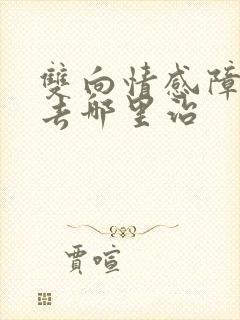 雙向情感障
去哪里治
賈喧